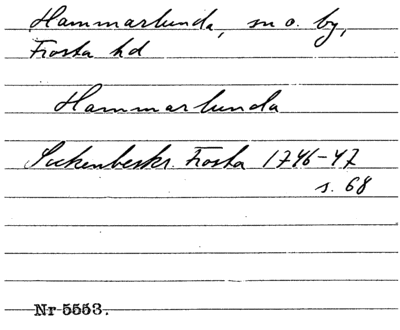 Hammarlunda, sn o. by,
Frosta hd
Hammarlunda
Sockenbeskr. Frosta 1746-47
s. 68
Nr 5553.